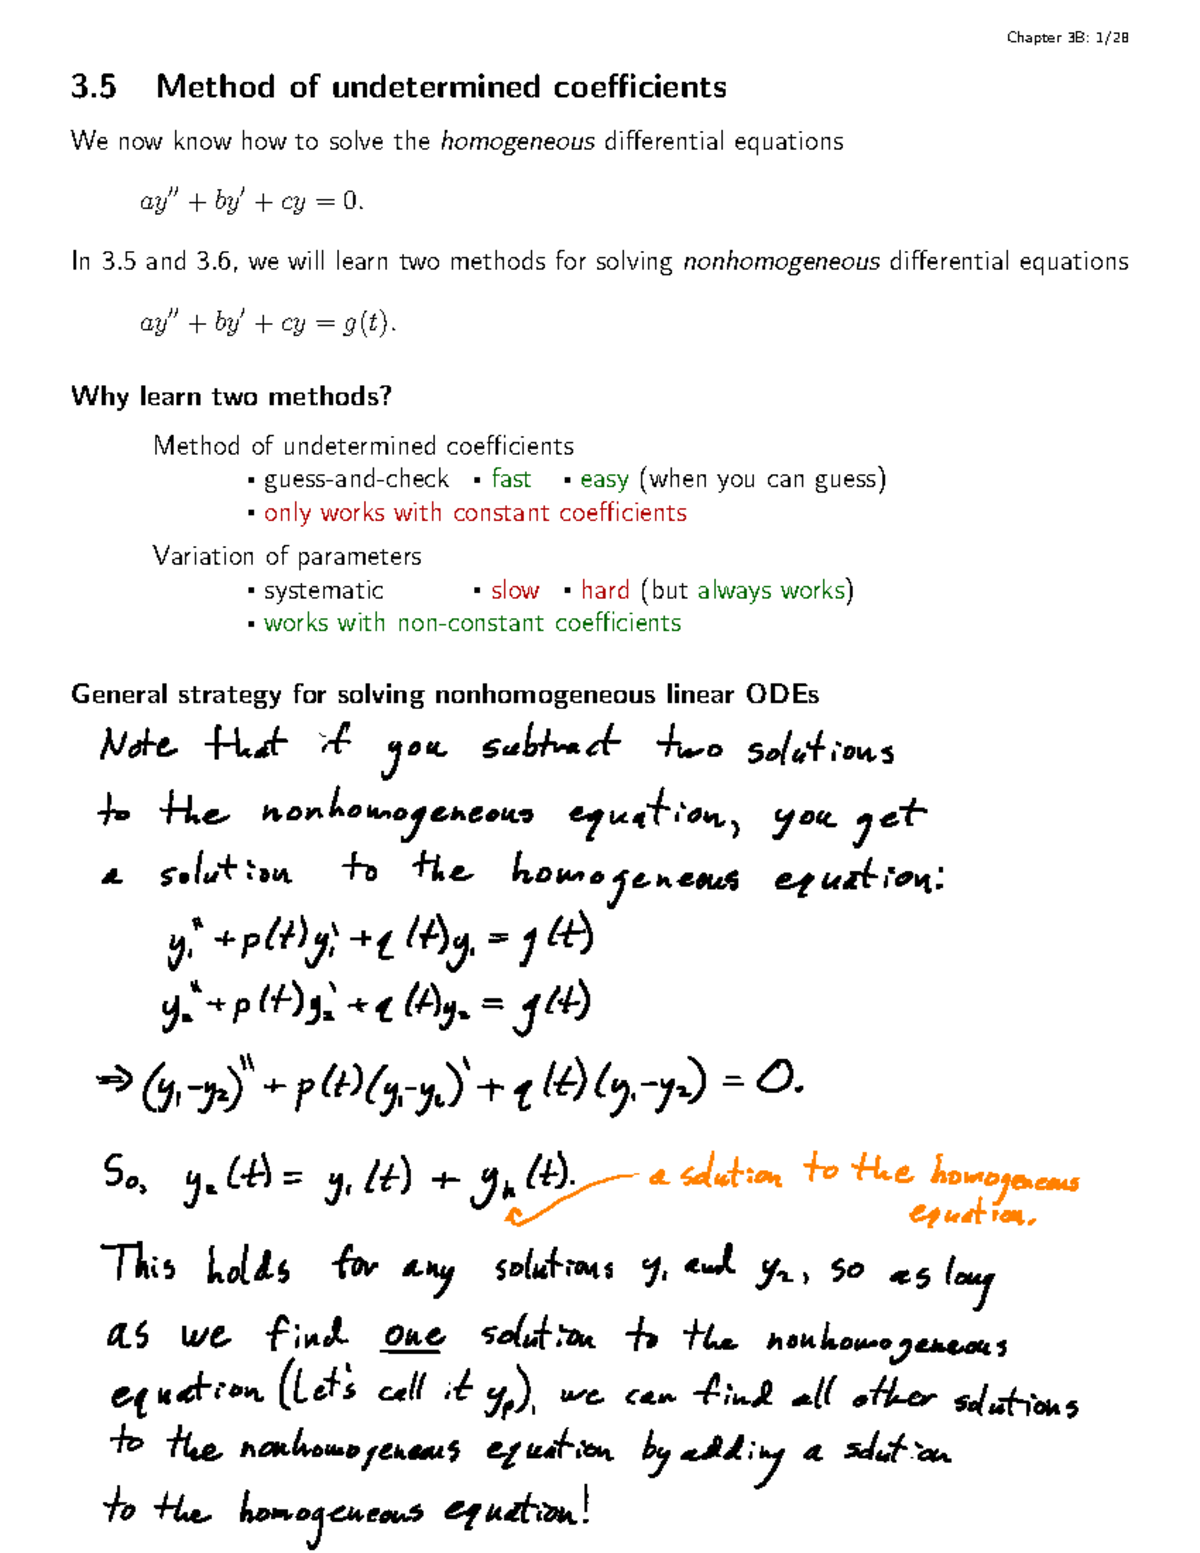 Chapter 3B: 1/28
3.5 Method of undetermined coefficients
We now know how to solve the homogeneous differential equations
ay′′ + by′ + cy = 0.
In 3.5 and 3.6, we will learn two methods for solving nonhomogeneous differential equations
ay′′ + by′ + cy = g(t).
Why learn two methods?
Method of undetermined coefficients
▪ guess-and-check ▪ fast ▪ easy (when you can guess)
▪ only works with constant coefficients
Variation of parameters
▪ systematic ▪ slow ▪ hard (but always works)
▪ works with non-constant coefficients
General strategy for solving nonhomogeneous linear ODEs
Note that if you subtract two solutions
to the nonhomogeneous equation, you get
a solution to the homogeneous equation:
y₁'' + p(t)y₁' + q(t)y₁ = g(t)
y₂'' + p(t)y₂' + q(t)y₂ = g(t)
⇒ (y₁-y₂)'' + p(t)(y₁-y₂)' + q(t)(y₁-y₂) = 0.
So, y₂(t) = y₁(t) + yₕ(t). a solution to the homogeneous
equation.
This holds for any solutions y₁ and y₂, so as long
as we find one solution to the nonhomogeneous
equation (Let's call it yₚ), we can find all other solutions
to the nonhomogeneous equation by adding a solution
to the homogeneous equation!